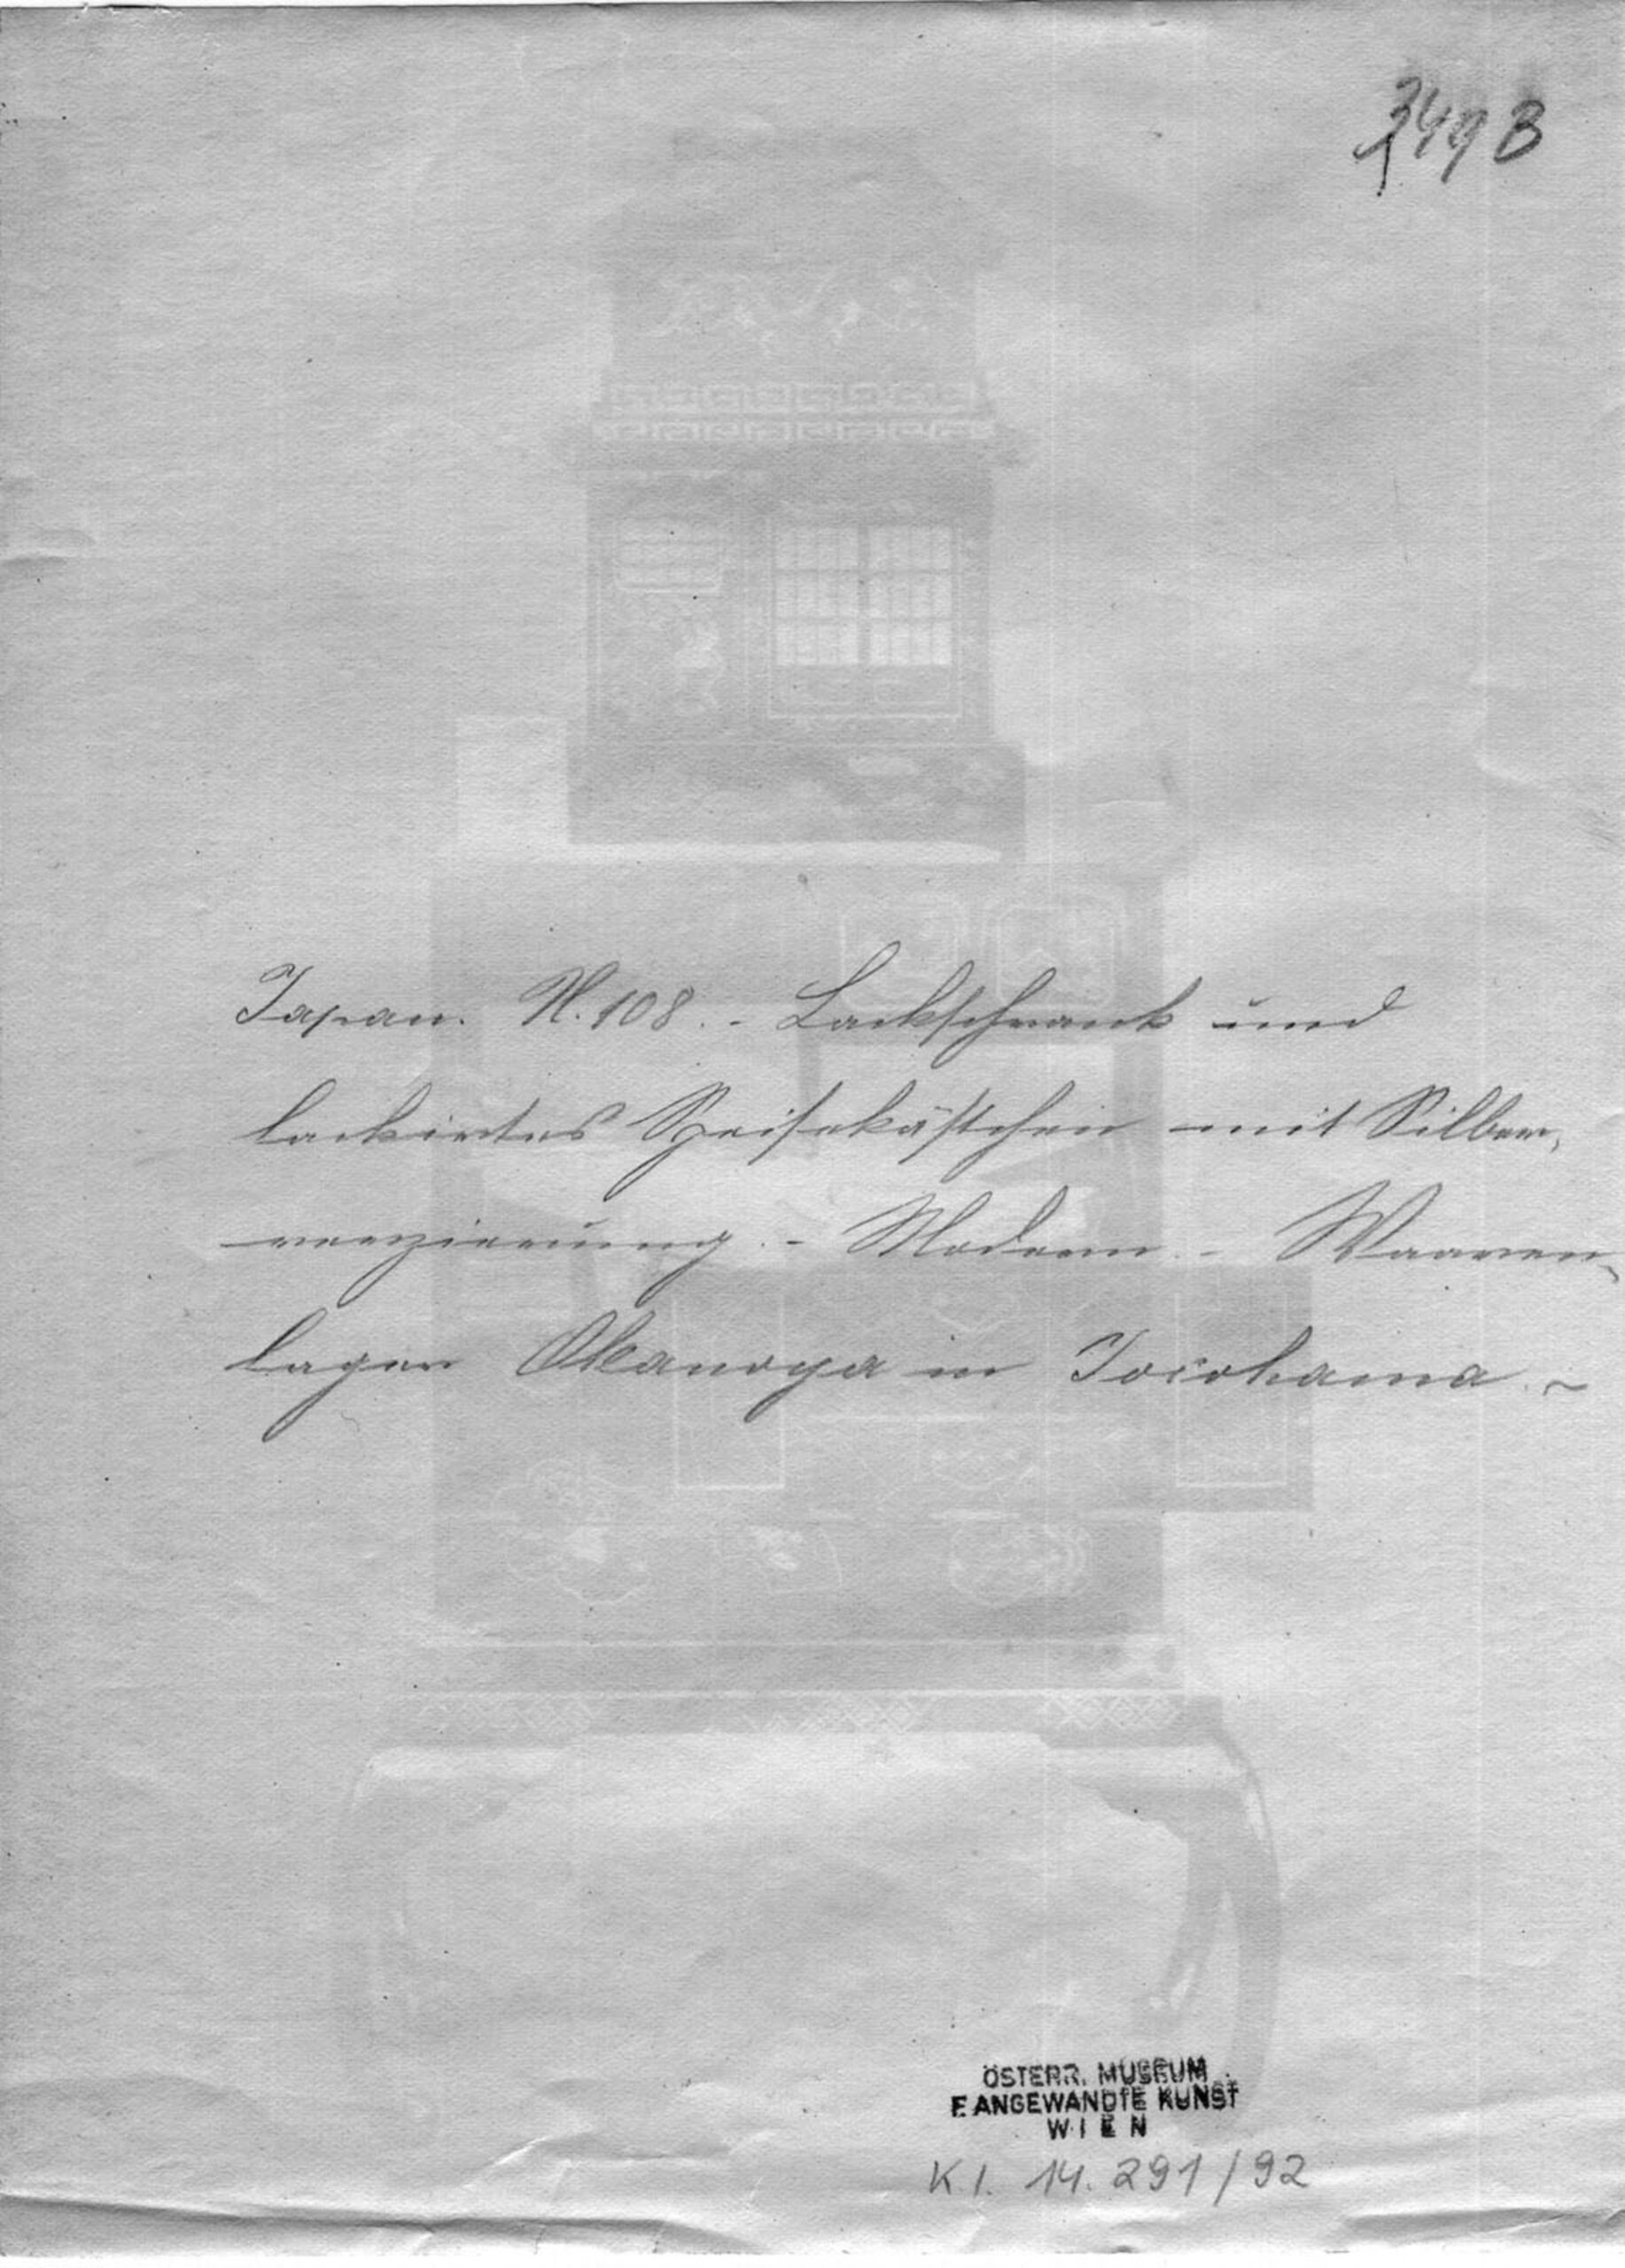 349 B
Japan. N. 108. - Lackschrank und
lackirtes Speisekästchen mit Silber-
verzierung. - Modern. - Waaren-
lager Okanoya in Jocohama. ~
ÖSTERR. MUSEUM
F. ANGEWANDTE KUNST
WIEN
K I. 14.291/92